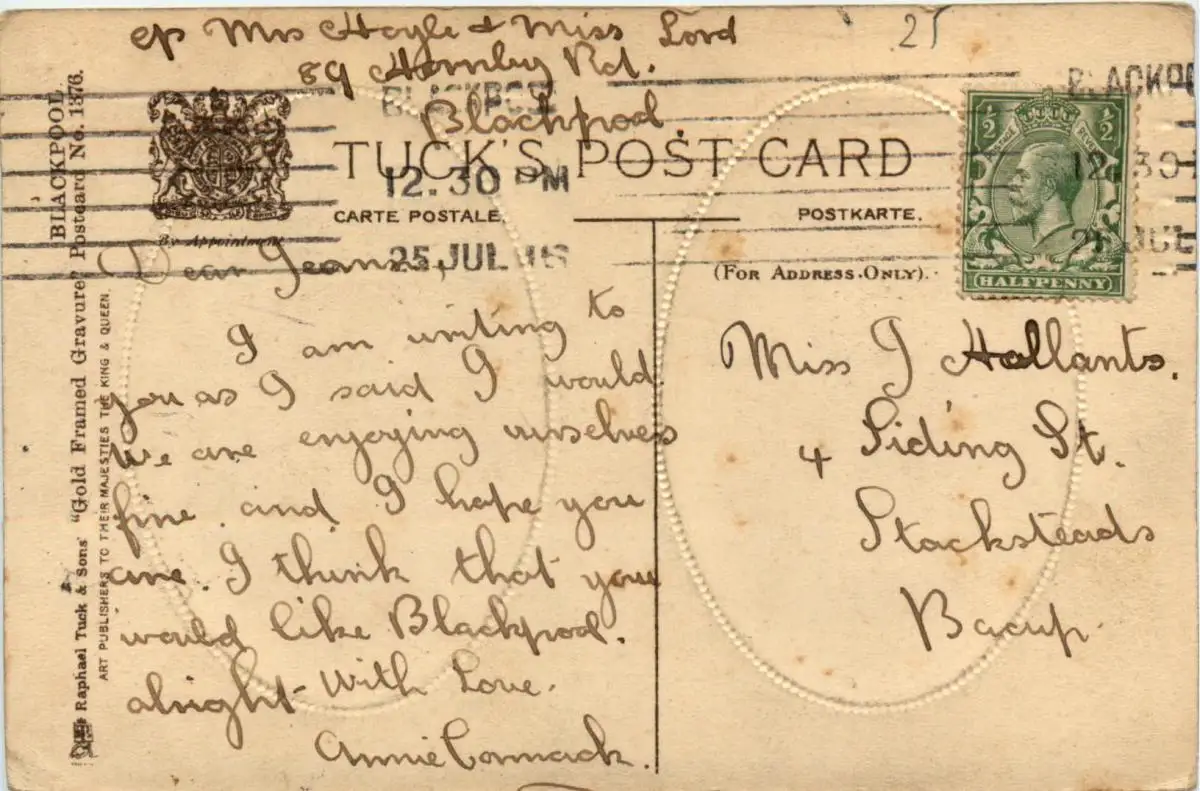 c/o Mrs Hoyle & Miss Lord
25
89 Hornby Rd.
Blackpool.
BLACKPOOL
12.30 PM
25 JUL 16
BLACKPO
12.30
25 JUL
TUCK'S POST CARD
CARTE POSTALE.
POSTKARTE.
By Appointment
(FOR ADDRESS ONLY).
HALFPENNY
½ ½
POSTAGE REVENUE
BLACKPOOL
Raphael Tuck & Sons' "Gold Framed Gravure" Postcard No. 1376.
ART PUBLISHERS TO THEIR MAJESTIES THE KING & QUEEN.
Dear
I am writing to
you as I said I would
We are enjoying ourselves
fine and I hope you
are. I think that you
would like Blackpool.
alright With Love.
Annie Cormack.
Miss J Hallants.
4 Siding St.
Stacksteads
Bacup.